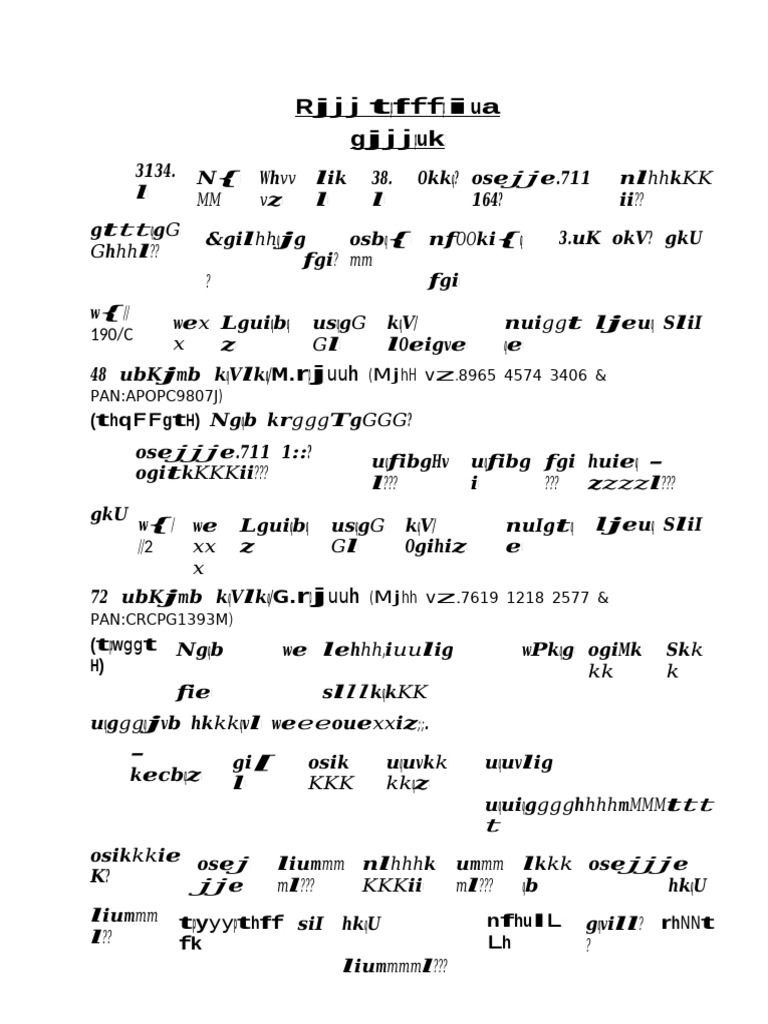 Rjjj t|fff|iua
gjjj|uk
3134. N{ Whvv lik 38. 0kk|? osejje.711 nlhhkKK
l MM vz l l 164? ii??
gttt|gG &gilhh|jg osb|{ nf00ki{| 3.uK okV? gkU
Ghhhl?? fgi? mm
? fgi
w{//
190/C wex Lgui|b| us|gG k|V| nuiggt ljeu| SliI
x z Gl l0eigve |e
48 ubKjmb k|Vlk|/M.rjuuh (MjhH vz.8965 4574 3406 &
PAN:APOPC9807J)
(thqFFgtH) Ng|b krgggTgGGG?
osejjje.711 1::? u|fibgHv u|fibg fgi huie| –
ogitkKKKii??? l??? i ??? zzzzl???
gkU w{/ we Lgui|b| us|gG k|V| nuIgt| ljeu| SliI
//2 xx z Gl 0gihiz e
x
72 ubKjmb k|Vlk|/G.rjuuh (Mjhh vz.7619 1218 2577 &
PAN:CRCPG1393M)
(t|wggt Ng|b we lehhh,iuulig wPk|g ogiMk Skk
H) kk k
fie slllk|kKK
u|ggg|jvb hkkk|vl weeeouexxiz;;.
– gi[ osik u|uvkk u|uvlig
kecb|z l KKK kk|z
u|ui|gggghhhhmMMMttt
t
osikkkie osej liummm nlhhhk ummm lkkk osejjje
K? jje ml??? KKKii ml??? |b hk|U
liummm t|yyy|thff siI hk|U nfhulL g|vill? rhNNt
l?? fk Lh ?
liummmml???